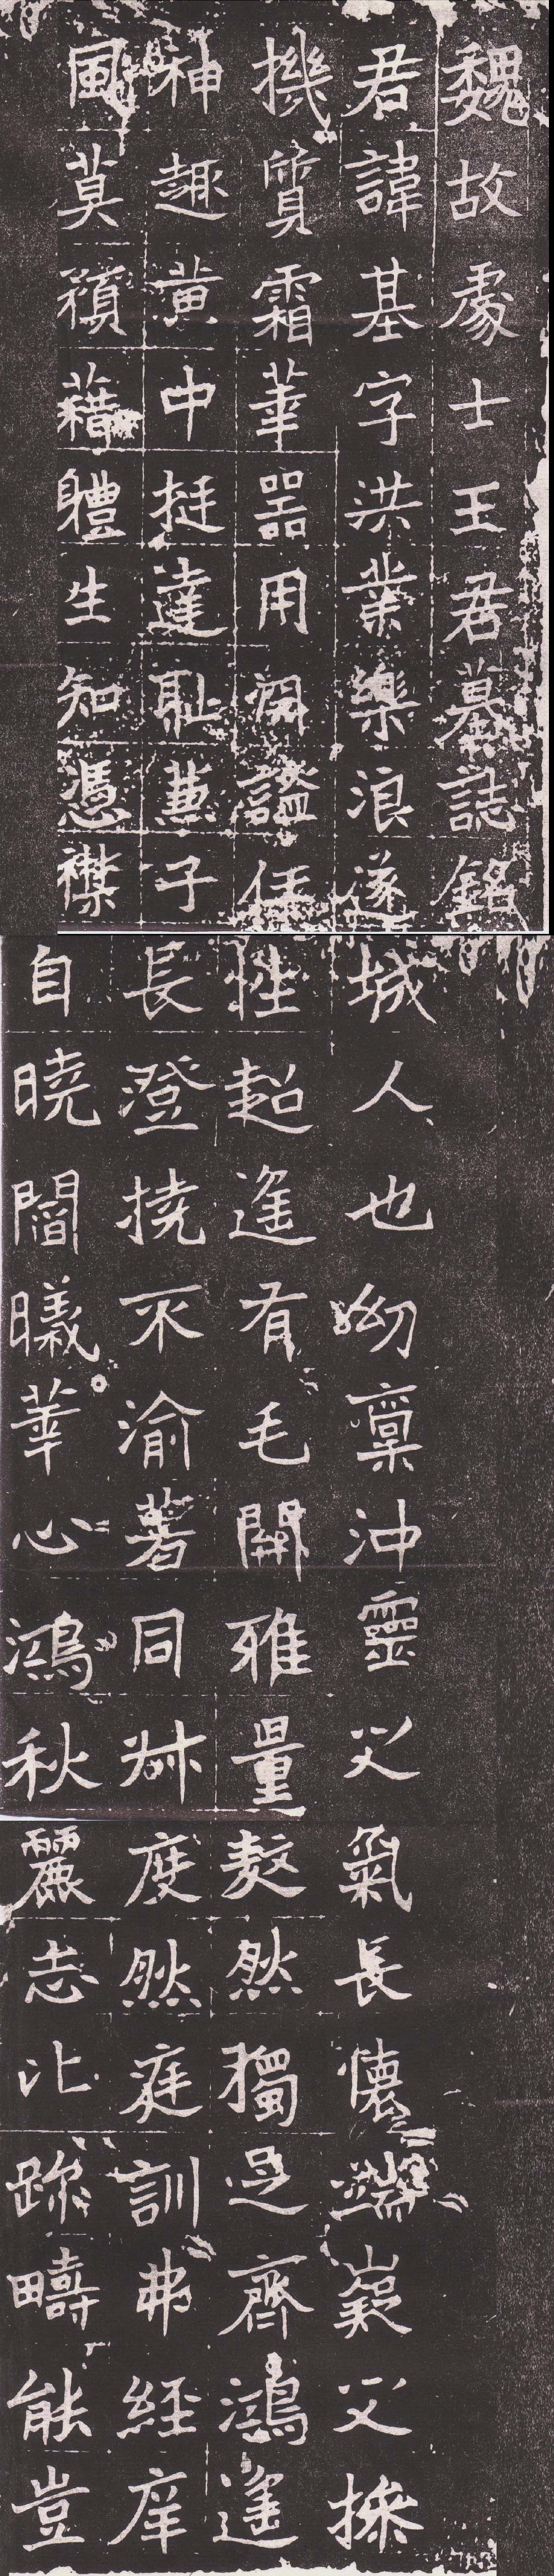 魏故處士王君墓誌銘
君諱基字洪業樂浪遂城人也幼稟沖靈之氣長懷端嶷之操
機質霜華器用閑謐任性超遙有毛開雅量敻然獨足齊鴻遙
神趣黃中挺達恥兼子長澄撓不渝著同叔度然庭訓弗經庠
風莫預藉體生知憑襟自曉闇曦華心鴻秋麗志比跡疇能豈